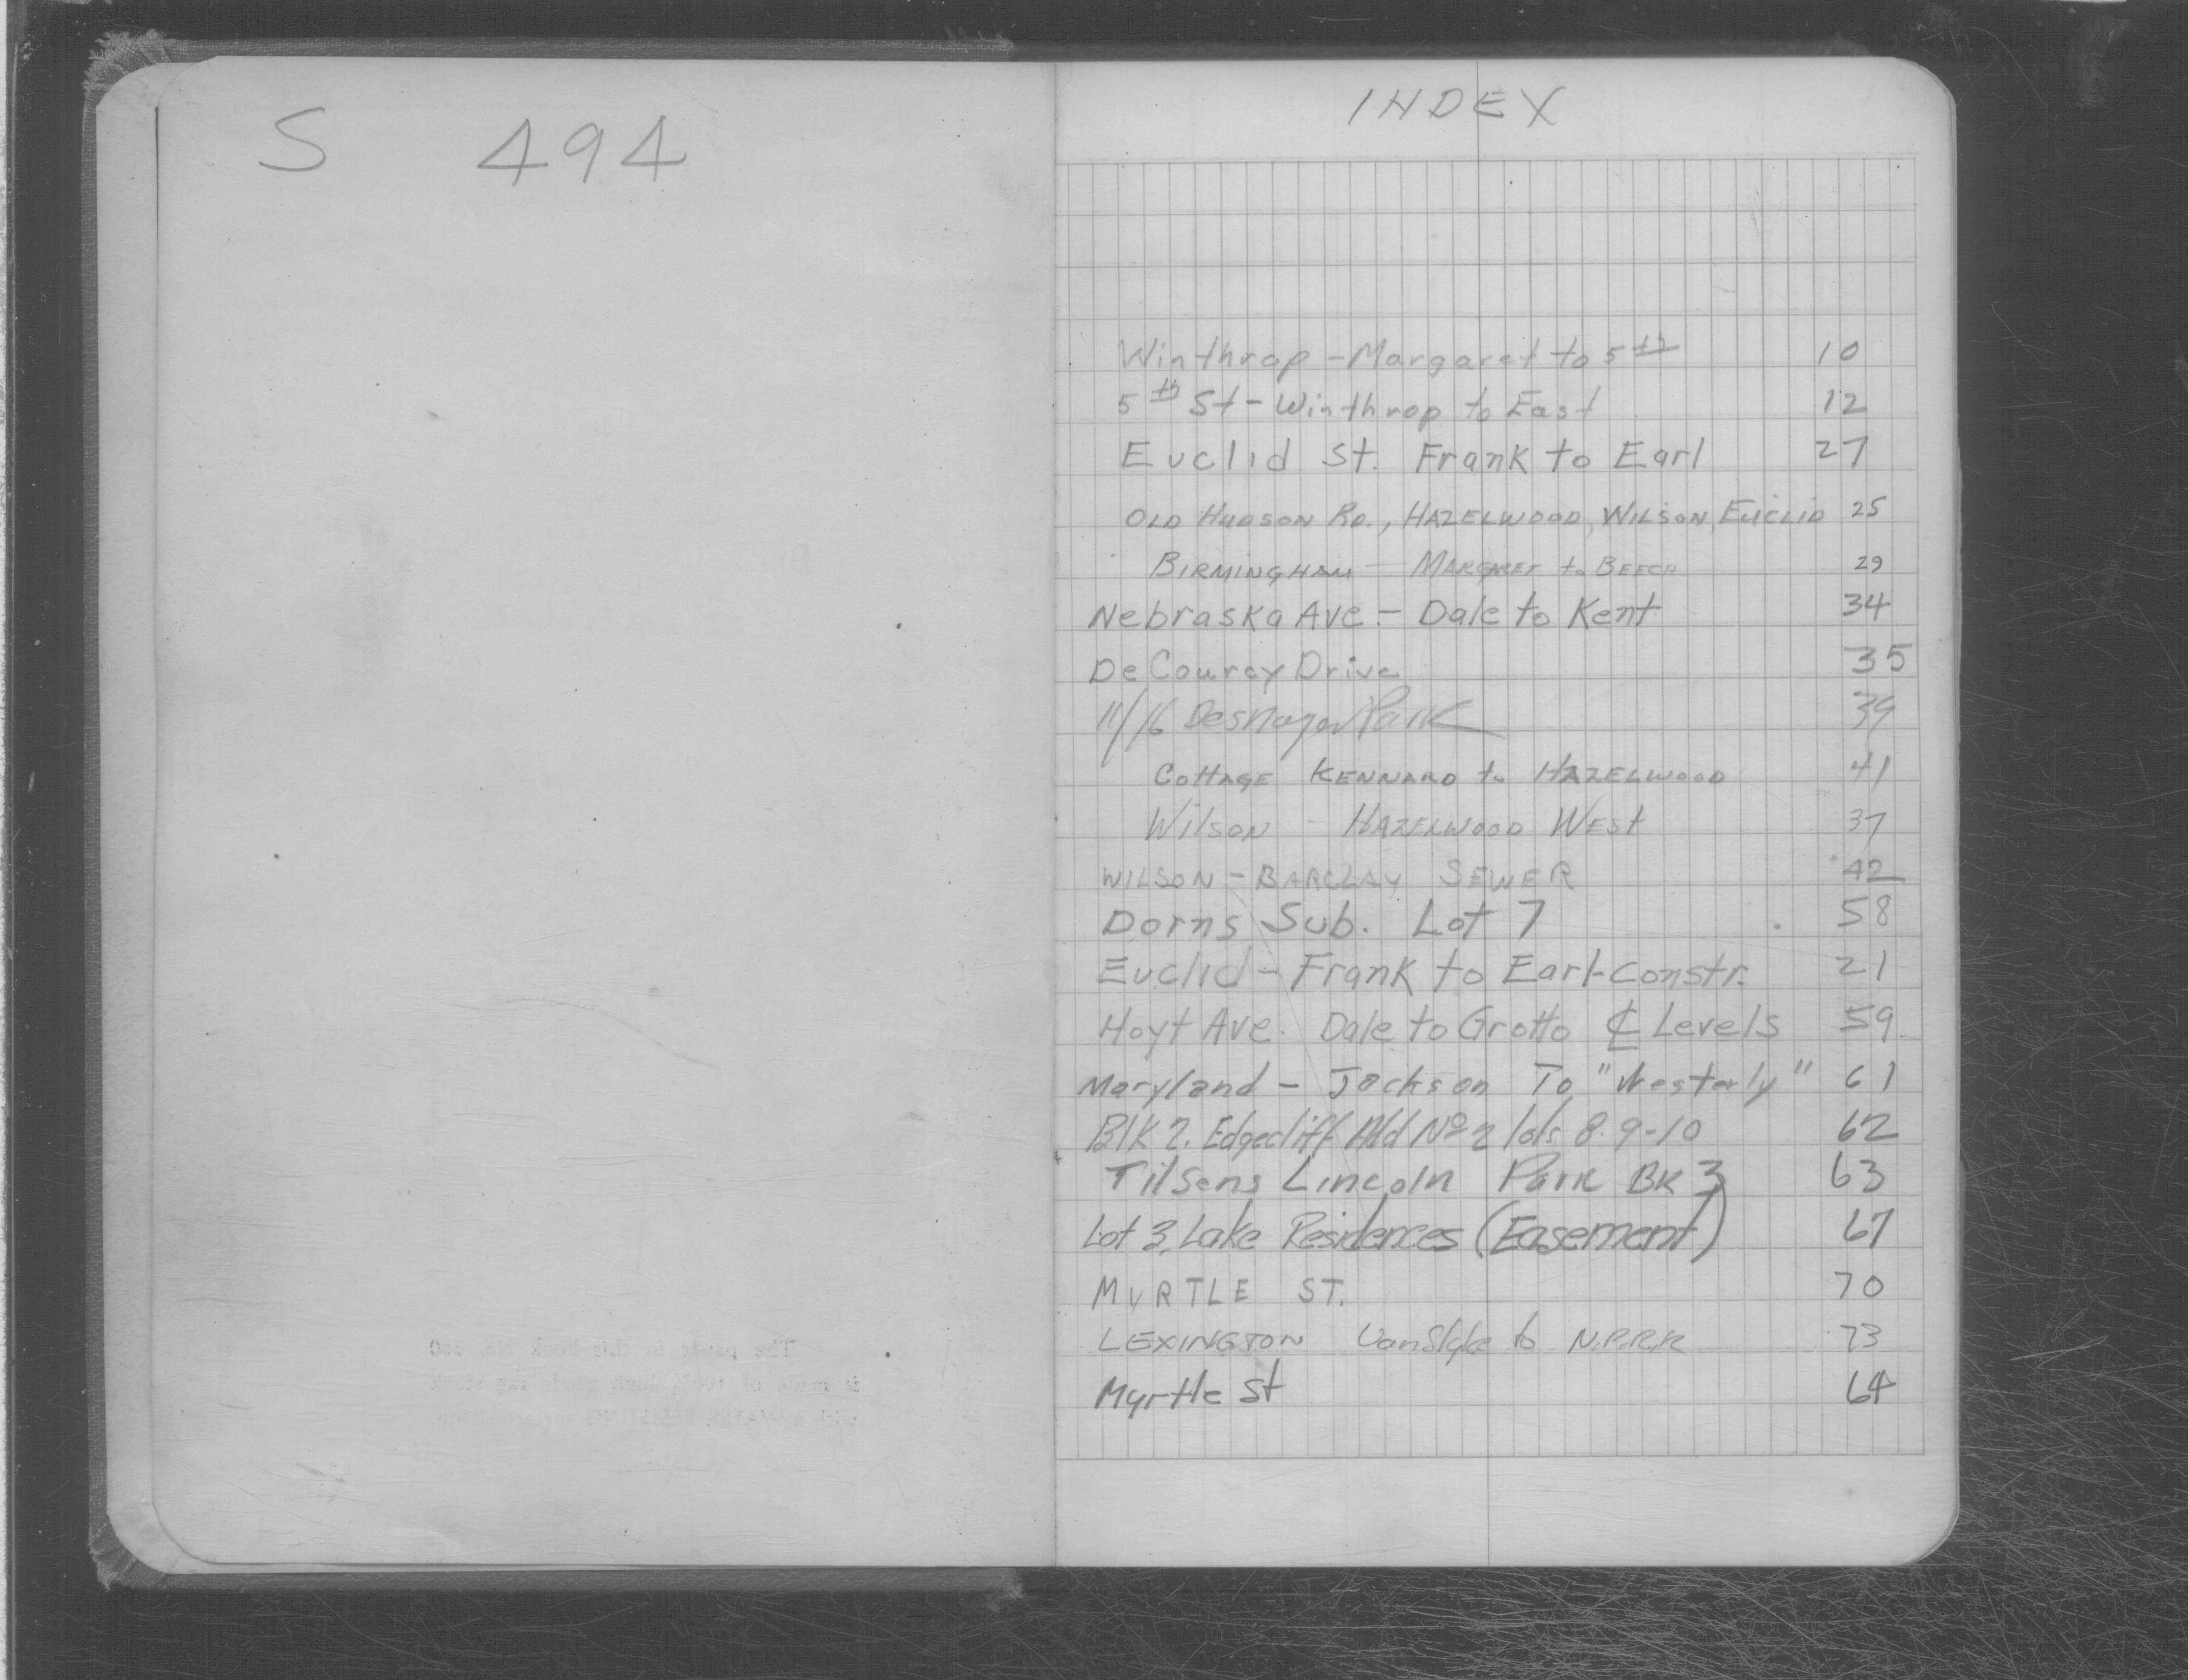 S 494
INDEX
Winthrop - Margaret to 5th 10
5th St - Winthrop to East 12
Euclid St. Frank to Earl 27
OLD HUDSON RD., HAZELWOOD, WILSON, EUCLID 25
BIRMINGHAM - MARGARET to BEECH 29
Nebraska Ave. - Dale to Kent 34
De Courcy Drive 35
11/16 Desnoyer Park 39
COTTAGE KENNARD to HAZELWOOD 41
WILSON - HAZELWOOD WEST 37
WILSON - BARCLAY SEWER 42
Dorns Sub. Lot 7 58
Euclid - Frank to Earl - Constr. 21
Hoyt Ave. Dale to Grotto ℄ Levels 59
Maryland - Jackson To "Westerly" 61
Blk 2. Edgecliff Add No 2 lots 8-9-10 62
Tilsens Lincoln Park BK 3 63
Lot 3, Lake Residences (Easement) 67
MYRTLE ST. 70
LEXINGTON VanSlyke to N.P.R.R 73
Myrtle St 64
The paper in this book No. 360
is made of 100% high grade rag stock
with a WATER RESISTING